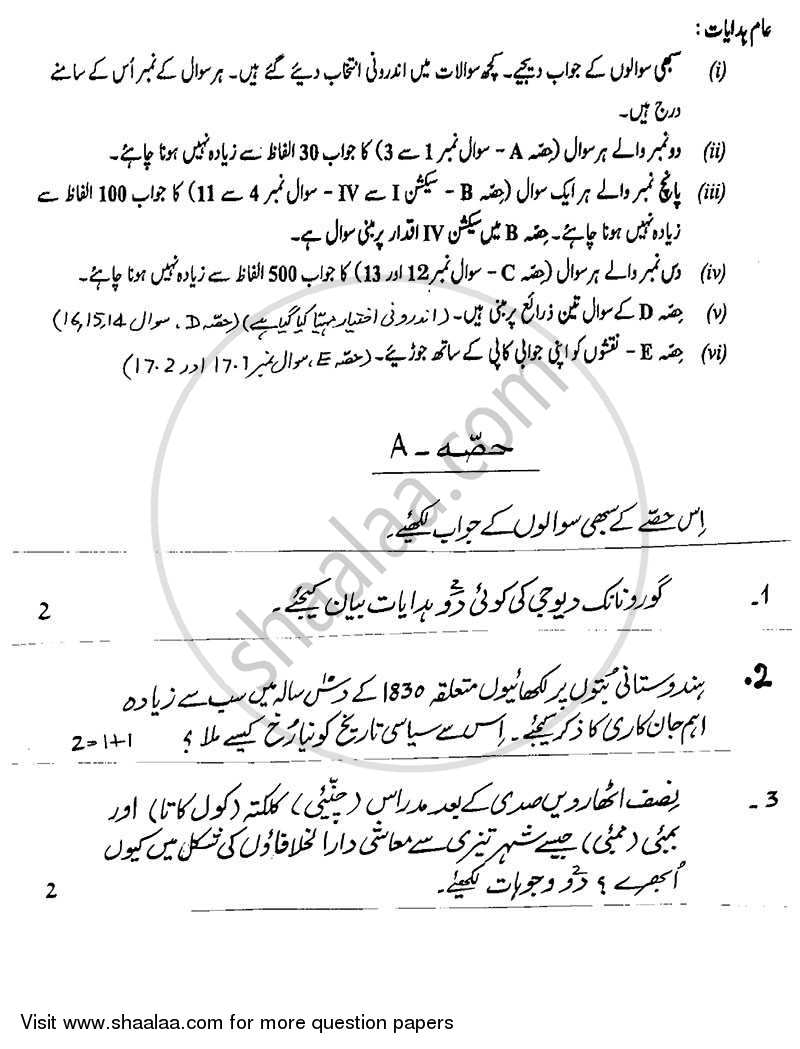 عام ہدایات :
(i) سبھی سوالوں کے جواب دیجیے۔ کچھ سوالات میں اندرونی انتخاب دیئے گئے ہیں۔ ہر سوال کے نمبر اُس کے سامنے
درج ہیں۔
(ii) دو نمبر والے ہر سوال (حصّہ A - سوال نمبر 1 سے 3) کا جواب 30 الفاظ سے زیادہ نہیں ہونا چاہئے۔
(iii) پانچ نمبر والے ہر ایک سوال (حصّہ B - سیکشن I سے IV - سوال نمبر 4 سے 11) کا جواب 100 الفاظ سے
زیادہ نہیں ہونا چاہئے۔ حصّہ B میں سیکشن IV اقدار پر مبنی سوال ہے۔
(iv) دس نمبر والے ہر سوال (حصّہ C - سوال نمبر 12 اور 13) کا جواب 500 الفاظ سے زیادہ نہیں ہونا چاہئے۔
(v) حصّہ D کے سوال تین ذرائع پر مبنی ہیں۔ (اندرونی اختیار مہیّا کیا گیا ہے) (حصّہ D، سوال 16,15,14)
(vi) حصّہ E - نقشوں کو اپنی جوابی کاپی کے ساتھ جوڑیئے۔ (حصّہ E، سوال نمبر 17.1 اور 17.2)
حصّہ - A
اِس حصّے کے سبھی سوالوں کے جواب لکھئیے۔
1۔ گورونانک دیوجی کی کوئی دو ہدایات بیان کیجئے۔ 2
2۔ ہندوستانی بُتوں پر لکھائیوں متعلقہ 1830 کے دس سالہ میں سب سے زیادہ
اہم جان کاری کا ذکر کیجئے۔ اِس سے سیاسی تاریخ کو نیا رُخ کیسے ملا؟ 2=1+1
3۔ نِصف اٹھارویں صدی کے بعد مدراس (چنّیئی) کلکتہ (کول کاتا) اور
بمبئی (ممبئی) جیسے شہر تیزی سے معاشی دارالخلافاؤں کی شکل میں کیوں
اُبھرے؟ دو وجوہات لکھیئے۔ 2
shaalaa.com
Visit www.shaalaa.com for more question papers